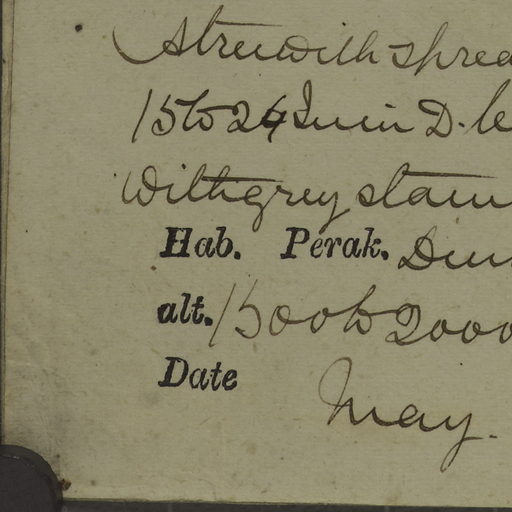 A tree with sprea
15 to 24 In in D. b
with grey stam
Hab. Perak. Den
alt. 1500 to 2000
Date May.